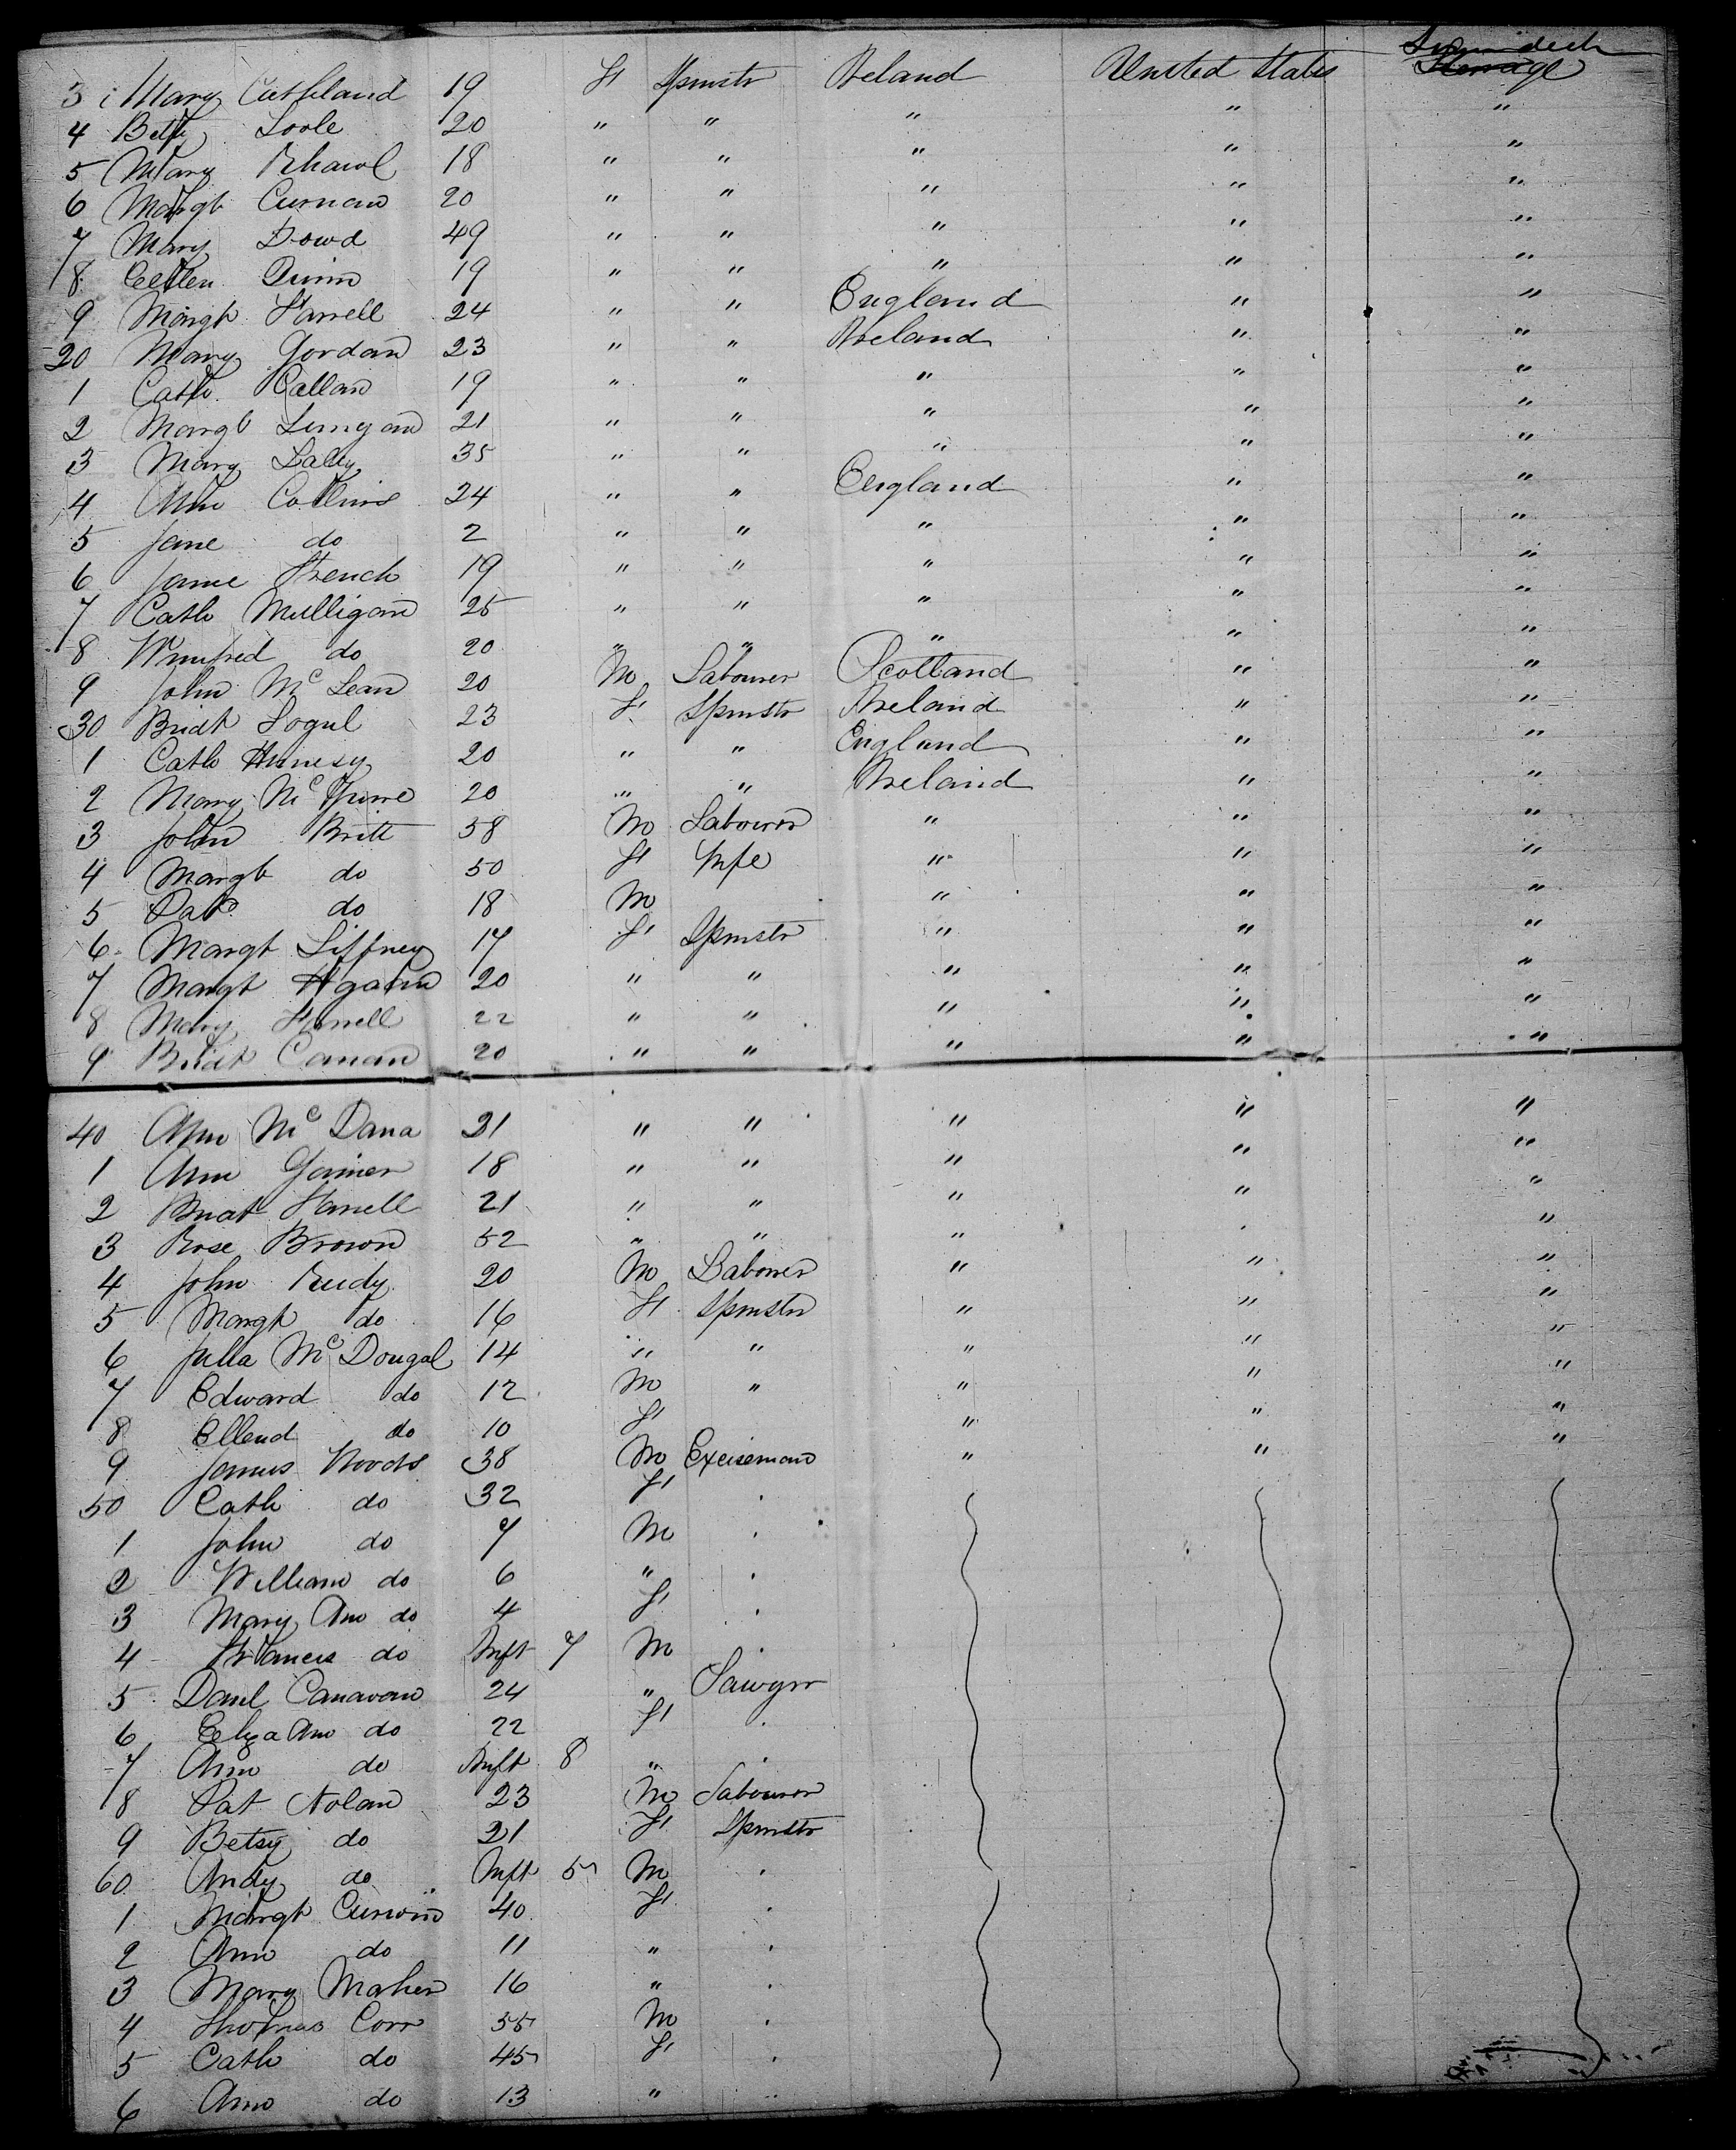 3 Mary Cathland 19 F Spinstr Ireland United States Steerage
4 Betty Toole 20 " " " " "
5 Mary 18 " " " " "
6 Margt Curnan 20 " " " " "
7 Mary Dowd 49 " " " " "
8 Ellen Quinn 19 " " " " "
9 Margt Farrell 24 " " England " "
20 Mary Jordan 23 " " Ireland " "
1 Cath Callan 19 " " " " "
2 Margt 21 " " " " "
3 Mary Lally 35 " " " " "
4 Ann Collins 24 " " England " "
5 Jane do 2 " " " " "
6 Jane French 19 " " " " "
7 Cath Mulligan 25 " " " " "
8 Winifred do 20 " " " " "
9 John McLean 20 M Labourer Scotland " "
30 Bridt Logul 23 F Spinstr Ireland " "
1 Cath Hunesy 20 " " England " "
2 Mary Mc 20 " " Ireland " "
3 John Britt 58 M Labourer " " "
4 Margt do 50 F Wife " " "
5 Pat do 18 M " " "
6 Margt Liffney 17 F Spinstr " " "
7 Margt 20 " " " " "
8 Mary Farrell 22 " " " " "
9 Bridt Canan 20 " " " " "
40 Ann McDana 21 " " " " "
1 Ann Joiner 18 " " " " "
2 Bridt Farrell 21 " " " " "
3 Rose Brown 52 " " " "
4 John Reidy 20 M Labourer " " "
5 Margt do 16 F Spinstr " " "
6 Julia McDougal 14 " " " " "
7 Edward do 12 M " " " "
8 Ellend do 10 F " " "
9 James Woods 38 M Exciseman " " "
50 Cath do 32 F
1 John do 7 M
2 William do 6 "
3 Mary Ann do 4 F
4 Francis do Inft 7 M
5 Danl Canavan 24 " Sawyer
6 Eliza Ann do 22 F
7 Ann do Inft 8 "
8 Pat Nolan 23 M Labourer
9 Betsy do 21 F Spinstr
60 Andy do Inft 5 M
1 Margt Curwin 40 F
2 Ann do 11 "
3 Mary Maher 16 "
4 Thomas Corr 55 M
5 Cath do 45 F
6 Ann do 13 "